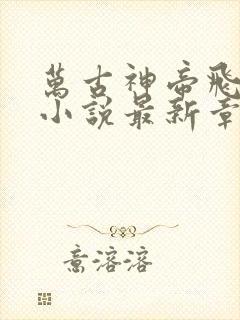 萬古神帝飛
小說最新章
意溶溶